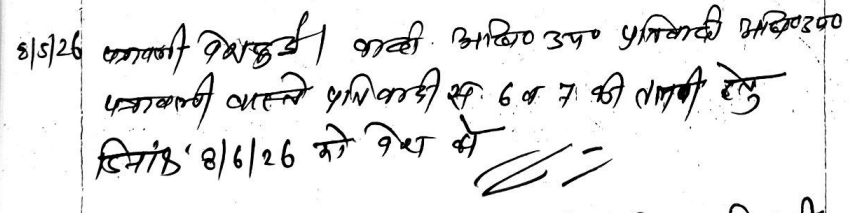 8/5/26 पत्रावली पेश हुई। वादी अधि० उप० प्रतिवादी अधि० उप०
पत्रावली वास्ते प्रतिवादी सं. 6 व 7 की तामीली हेतु
दिनांक 8/6/26 को पेश हो